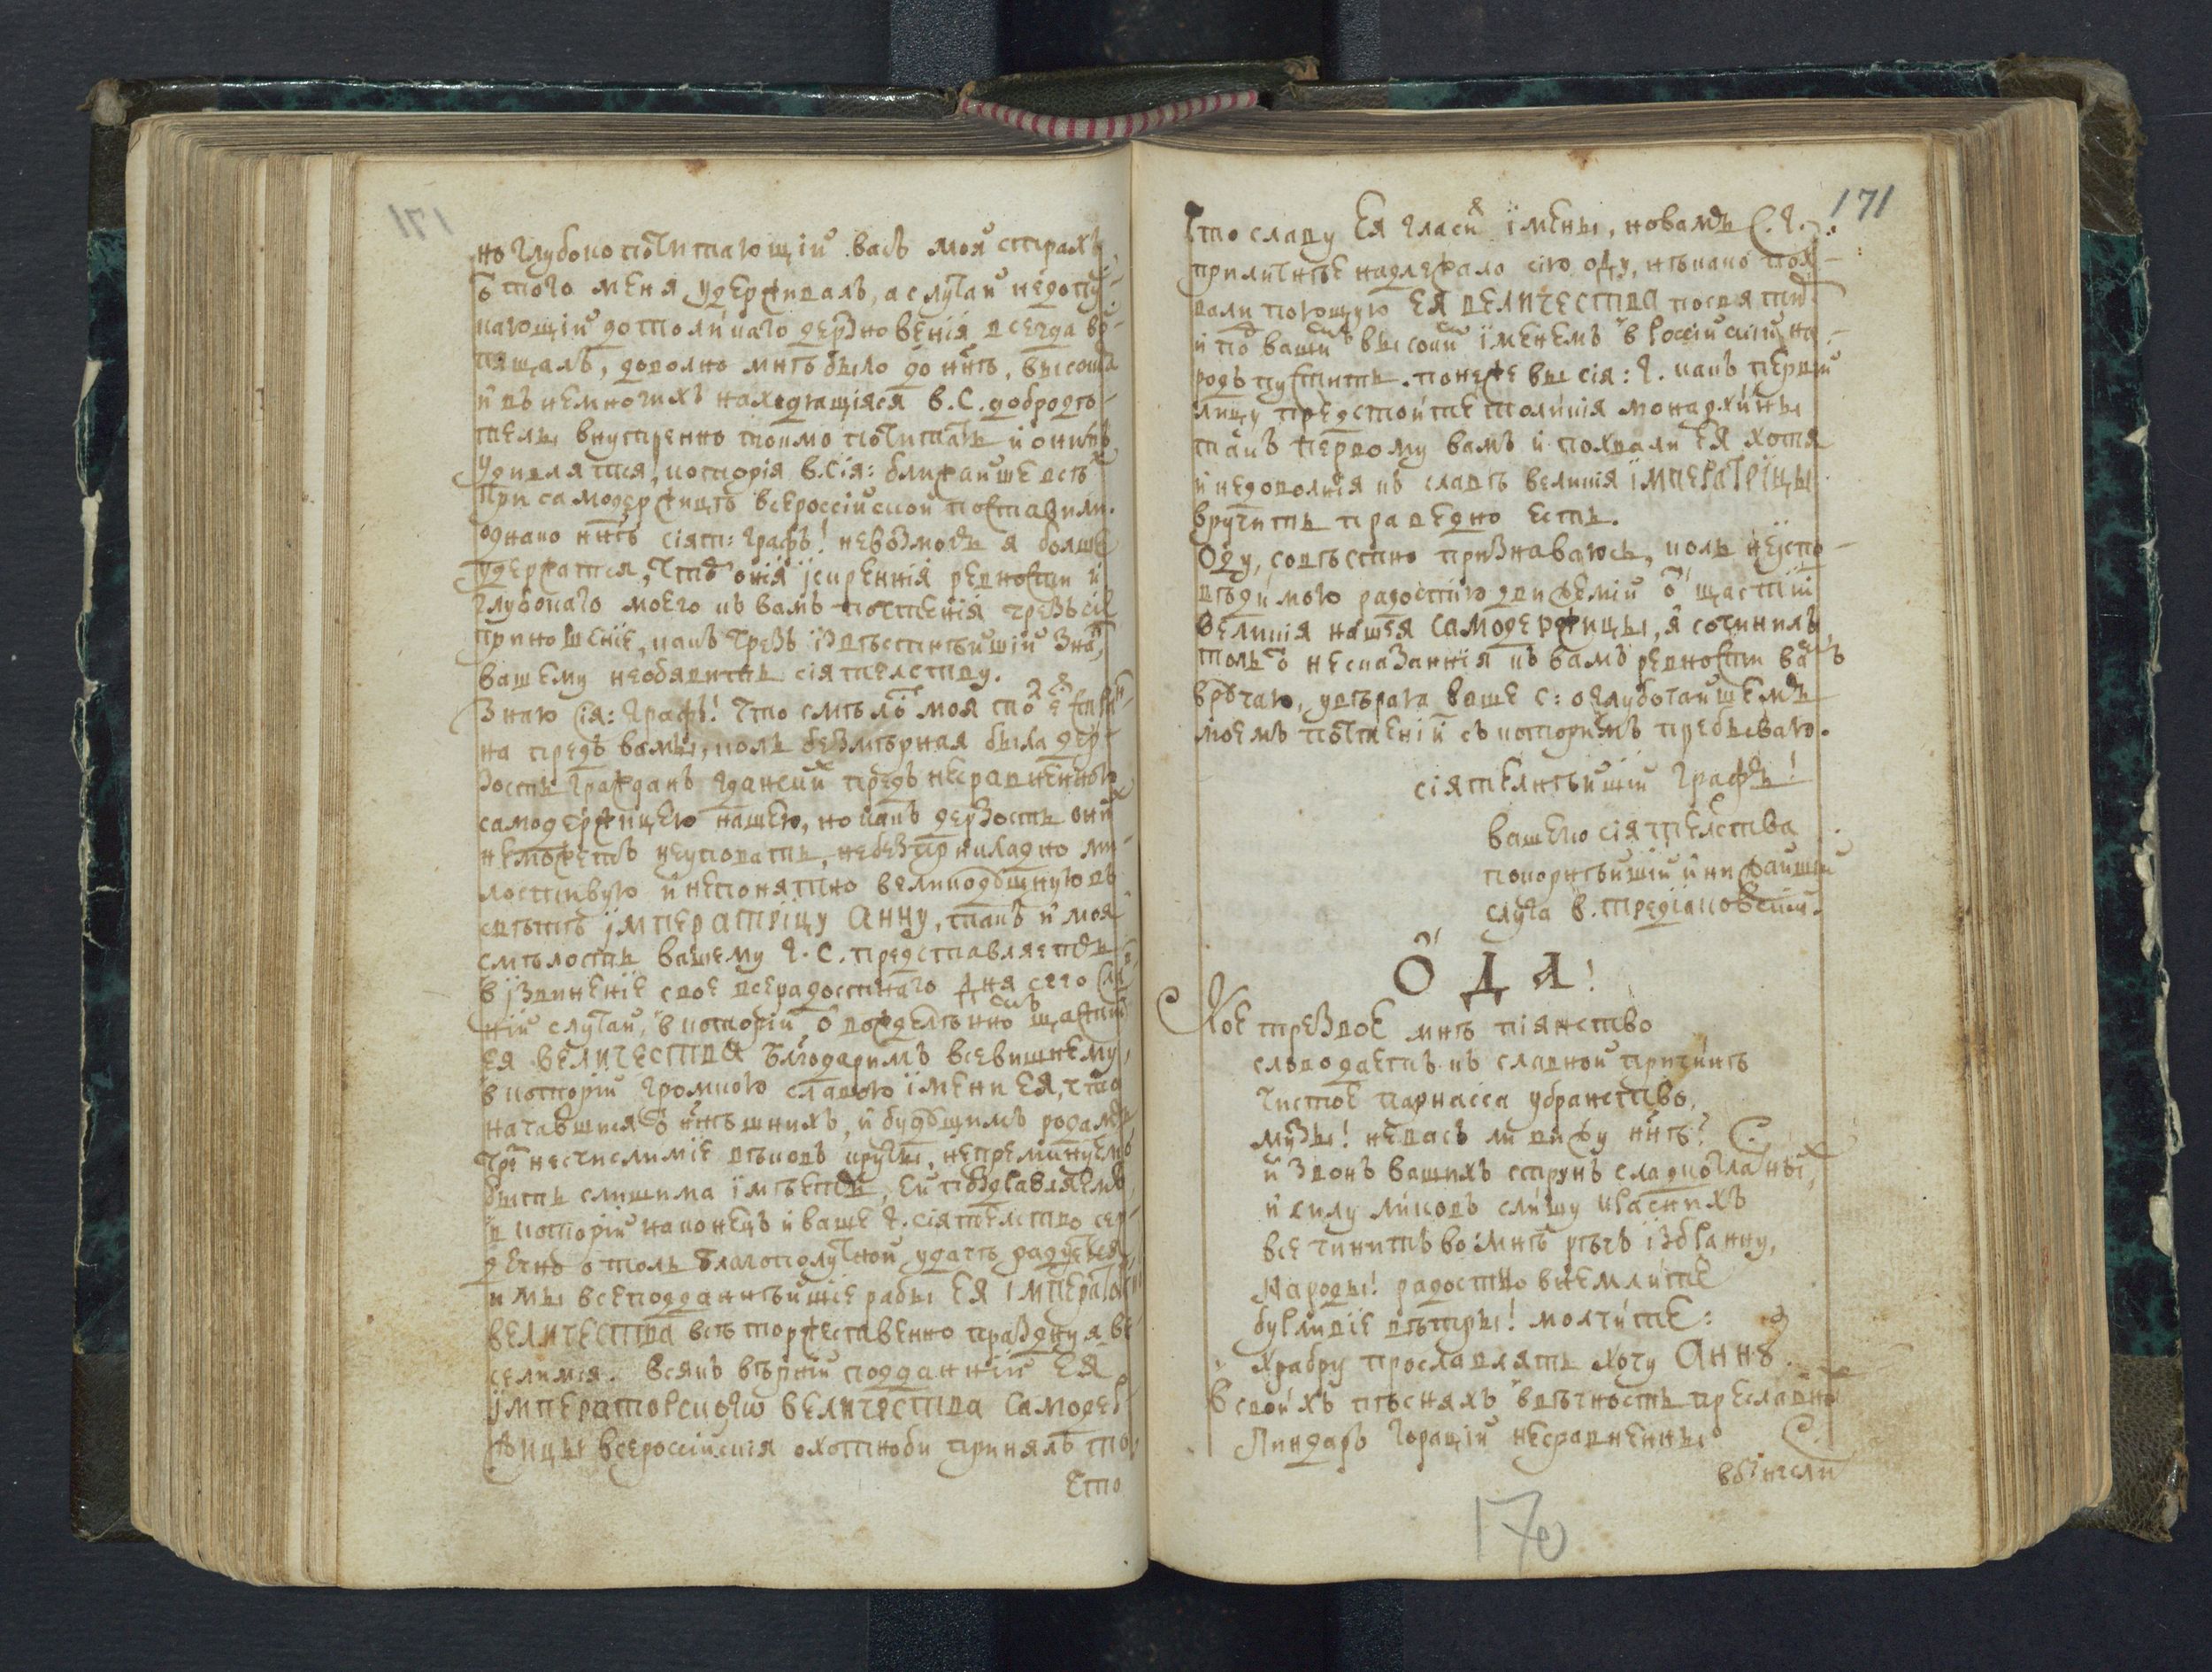 но глубоко почитающій васъ мой страхъ
ѿ того меня удерживалъ, а случай недопу-
кающій до толикаго дерзновенія всегда во-
пящалъ, доволно мнѣ было до ннѣ, высоша
и въ немногихъ находящіяся В. С. добродѣ-
тели внутренно токмо почитать и онимъ
удивлятися, которія В. Сія: ближайше всѣхъ
при самодержицѣ всероссійской поставили.
однако ннѣ сіят: Графъ! невозмодь я болше
удержатися, чтоб онія іскреннія ревности и
глубокаго моего къ вамъ почтенія чрезъ сіе
приношеніе, какъ чрезъ ізвѣстнѣйшій знакъ,
вашему необявить сіятелству.
Знаю Сія: Графъ! что смѣлост моя тол
на предъ вами, коль безмѣрная была дер-
зость Гражданъ Гданскихъ предъ несравненною
самодержицею нашею, но какъ дерзость онихъ
неможетъ неуповать, небезприкладно ми-
лостивую и непонятно великодꙋшную въ
свѣтѣ імператріцу Анну, такъ и моя
смѣлость вашему Г. С. представляетъ
в ізвиненіе свое всерадостнаго дня сего
ній случай, в которій о вождѣленно щастіи
ея величества Благодаримъ всевишнему,
в которій громкою славою імени ея, что
начавшися ѿ ннѣшнихъ, и будꙋщимъ родамъ
чрез несчислиміе вѣковъ круги, непреминуемо
быть слишима імѣетъ, ей поздравляемъ,
в которій наконецъ и ваше Г. сіятелство сер-
дечно о толь благополучной удачѣ радуется,
и мы всеподданнѣйшіе рабы ея імператор
величества всѣ торжественно празднуя ве-
селимся. Всякъ вѣрній подданній ея
імператорскагѡ величества самодер-
жицы всероссійскія охотноби принялъ то,
Ето
171
Что славу ея гласи імены, но вамъ С. Г.
приличнѣе надлежало сію оду, нѣкако пох-
вали поющую ея величества посвятит
и под вашим высоким іменемъ в Россійскій на-
родъ пустить. понеже вы сія: Г. какъ первій
лицу предстоите толикія монархины
такъ первому вамъ и похвали ея хотя
и недоволнія къ славѣ великія імператріцы
вручить праведно есть.
Оду, совѣстно признаваюсь, коль неіспо-
вѣдимою радостію движемій о щастіи
великія нашея самодержицы, я сочинилъ
толь о несказаннія къ вамъ ревности вамъ
врꙋчаю, увѣрая ваше С: о глубочайшемъ
моемъ почтеній съ которимъ пребываю.
сіятелнѣйшій графъ!
вашего сіятелства
покорнѣйшій и нижайшій
слуга В. Тредіаковскій.
ОДА!
Кое трезвое мнѣ піянство
слово даетъ къ славной причинѣ
чистое парнасса убранство,
музы! не васъ ли вижу ннѣ?
и звонъ вашихъ струнъ сладкогланыхъ,
и силу ликовъ слишу красныхъ
все чинитъ во мнѣ рѣчъ ізбранну,
Народы! радостно внемлите
бурливіе вѣтры! молчите:
храбру прославлять хочу Аннꙋ.
В своихъ пѣсняхъ в вѣчность преславно
Пиндаръ Горацій несравненны
взнесли
170